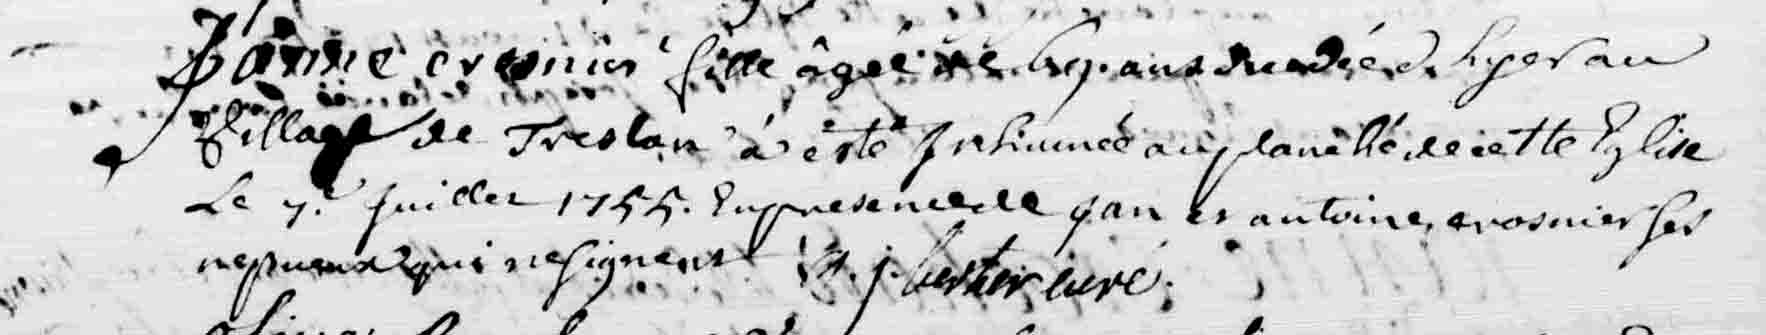 Janne crosnier fille âgée de ans decédée hyer au
Village de Treslan à êsté Jnhumée au planché de cette Eglise
Le 7.e Juillet 1755. En presence de jan et antoine crosnier ses
nepueux qui ne signent curé.